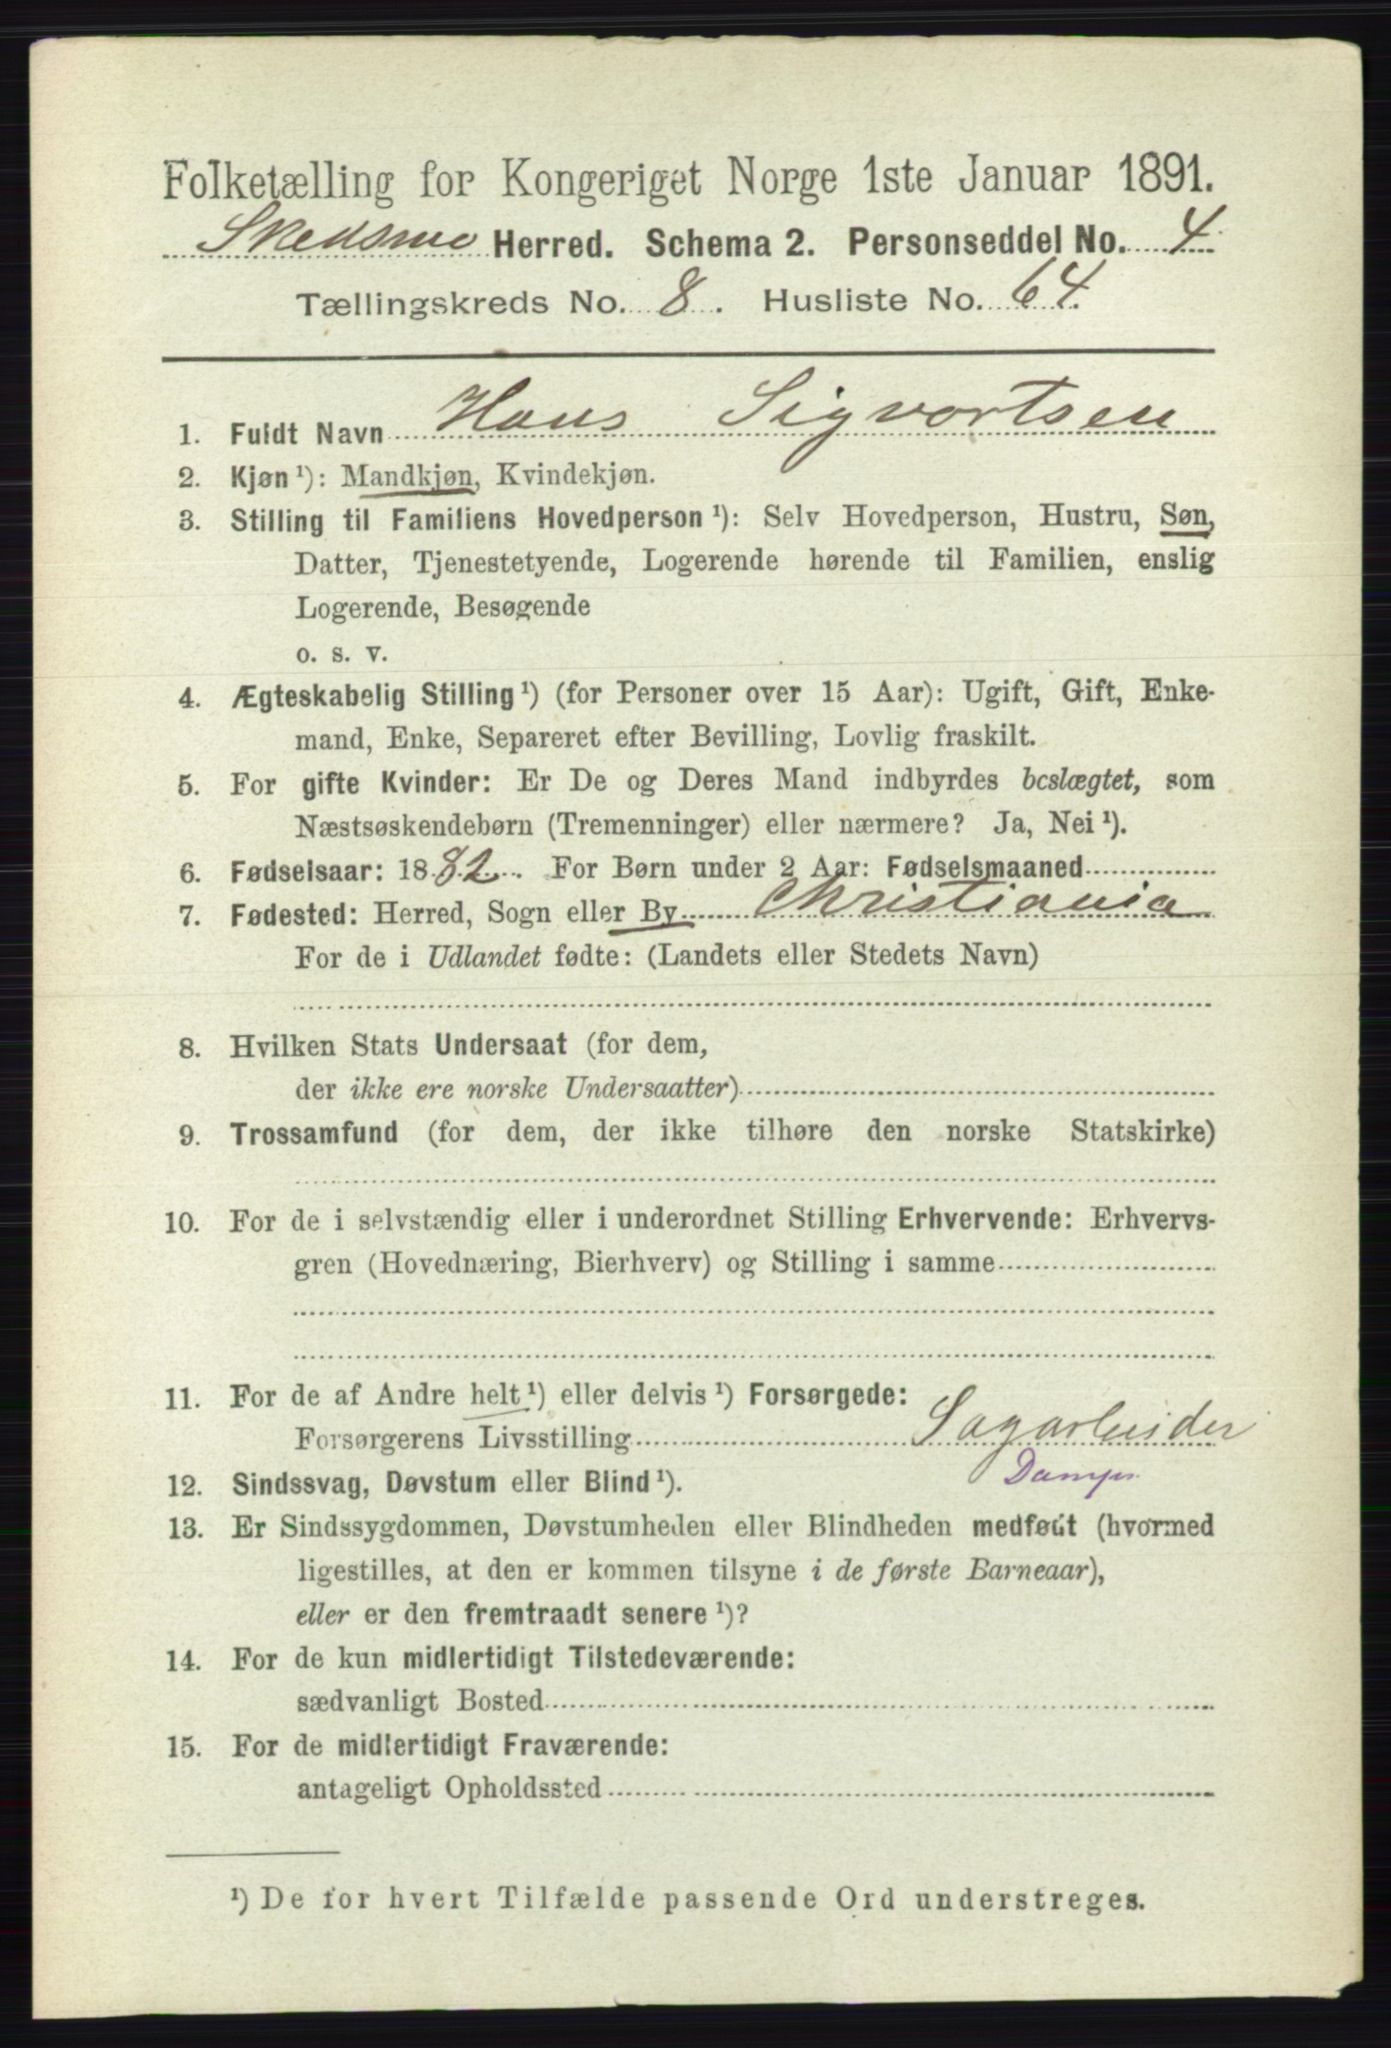 Folketælling for Kongeriget Norge 1ste Januar 1891.
Skedsmo Herred. Schema 2. Personseddel No. 4
Tællingskreds No. 8. Husliste No. 64.
1. Fuldt Navn Hans Sigvartsen
2. Kjøn ¹): Mandkjøn, Kvindekjøn.
3. Stilling til Familiens Hovedperson ¹): Selv Hovedperson, Hustru, Søn,
Datter, Tjenestetyende, Logerende hørende til Familien, enslig
Logerende, Besøgende
o. s. v.
4. Ægteskabelig Stilling ¹) (for Personer over 15 Aar): Ugift, Gift, Enke-
mand, Enke, Separeret efter Bevilling, Lovlig fraskilt.
5. For gifte Kvinder: Er De og Deres Mand indbyrdes beslægtet, som
Næstsøskendebørn (Tremenninger) eller nærmere? Ja, Nei ¹).
6. Fødselsaar: 1882. For Børn under 2 Aar: Fødselsmaaned
7. Fødested: Herred, Sogn eller By Christiania
For de i Udlandet fødte: (Landets eller Stedets Navn)
8. Hvilken Stats Undersaat (for dem,
der ikke ere norske Undersaatter)
9. Trossamfund (for dem, der ikke tilhøre den norske Statskirke)
10. For de i selvstændig eller i underordnet Stilling Erhvervende: Erhvervs-
gren (Hovednæring, Bierhverv) og Stilling i samme
11. For de af Andre helt ¹) eller delvis ¹) Forsørgede:
Forsørgerens Livsstilling Sagarbeider
Damps.
12. Sindssvag, Døvstum eller Blind ¹).
13. Er Sindssygdommen, Døvstumheden eller Blindheden medfødt (hvormed
ligestilles, at den er kommen tilsyne i de første Barneaar),
eller er den fremtraadt senere ¹)?
14. For de kun midlertidigt Tilstedeværende:
sædvanligt Bosted
15. For de midlertidigt Fraværende:
antageligt Opholdssted
¹) De for hvert Tilfælde passende Ord understreges.